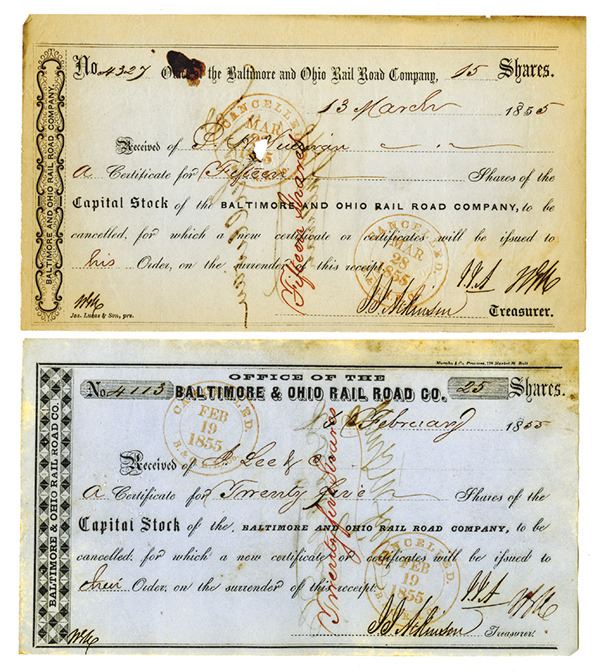 No. 4327 Office of the Baltimore and Ohio Rail Road Company, 15 Shares.
13 March 1855
Received of
A Certificate for Fifteen Shares of the
Capital Stock of the BALTIMORE AND OHIO RAIL ROAD COMPANY, to be
cancelled, for which a new certificate or certificates will be issued to
his Order, on the surrender of this receipt.
Treasurer.
Jas. Lucas & Son, prs.
BALTIMORE AND OHIO RAIL ROAD COMPANY.
Fifteen Shares
CANCELLED.
MAR
CANCELLED.
MAR
28
1855
OFFICE OF THE
No. 4113 BALTIMORE & OHIO RAIL ROAD CO. 25 Shares.
February 1855
Received of Lee &
A Certificate for Twenty five Shares of the
Capital Stock of the BALTIMORE AND OHIO RAIL ROAD COMPANY, to be
cancelled, for which a new certificate or certificates will be issued to
their Order, on the surrender of this receipt.
Treasurer.
BALTIMORE & OHIO RAIL ROAD CO.
Twenty five Shares
FEB
19
1855
CANCELLED.
FEB
19
1855